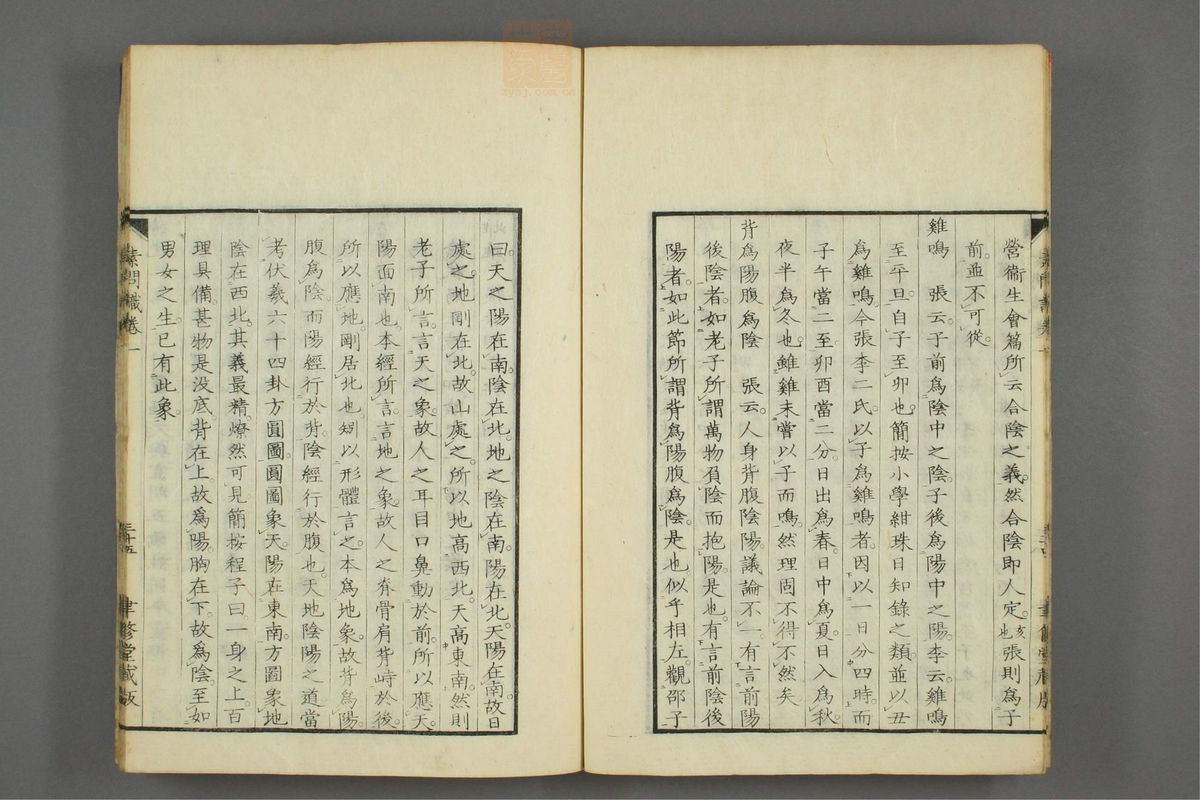 營衞生會篇所云合陰之義然合陰卽人定亥也張則爲子
前並不可從
雞鳴　張云子前爲陰中之陰子後爲陽中之陽李云雞鳴
至平旦自子至卯也簡按小學紺珠日知錄之類並以丑
爲雞鳴今張李二氏以子爲雞鳴者因以一日分四時而
子午當二至卯酉當二分日出爲春日中爲夏日入爲秋
夜半爲冬也雖雞未嘗以子而鳴然理固不得不然矣
背爲陽腹爲陰　張云人身背腹陰陽議論不一有言前陽
後陰者如老子所謂萬物負陰而抱陽是也有言前陰後
陽者如此節所謂背爲陽腹爲陰是也似乎相左觀邵子
曰天之陽在南陰在北地之陰在南陽在北天陽在南故日
處之地剛在北故山處之所以地高西北天高東南然則
老子所言言天之象故人之耳目口鼻動於前所以應天
陽面南也本經所言言地之象故人之脊骨肩背峙於後
所以應地剛居北也矧以形體言之本爲地象故背爲陽
腹爲陰而陽經行於背陰經行於腹也天地陰陽之道當
考伏羲六十四卦方圓圖圓圖象天陽在東南方圖象地
陰在西北其義最精燎然可見簡按程子曰一身之上百
理具備甚物是没底背在上故爲陽胸在下故爲陰至如
男女之生已有此象
素問識卷一
三十五
聿修堂藏版
zysj.com.cn